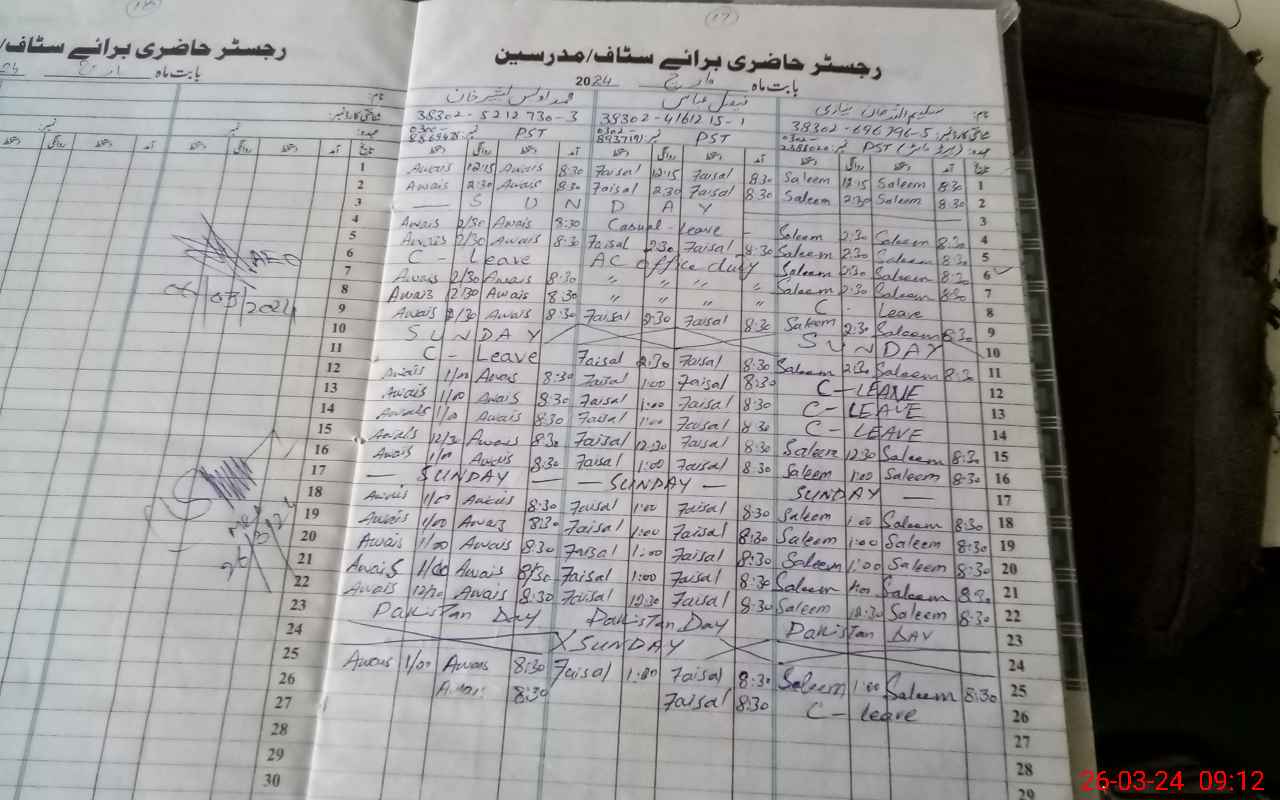 17
رجسٹر حاضری برائے سٹاف/مدرسین
رجسٹر حاضری برائے سٹاف/
بابت ماہ مارچ 2024
بابت ماہ مارچ
نام: سلیم اللہ خان نیازی فیصل عباس محمد اویس بشیر خان
شناختی کارڈ نمبر: 38302-5212730-3 38302-4161215-1
عہدہ: PST PST PST
تاریخ آمد دستخط روانگی دستخط آمد دستخط روانگی دستخط آمد دستخط روانگی دستخط
1 Awais 12:15 Awais 8:30 Faisal 12:15 Faisal 8:30 Saleem 12:15 Saleem 8:30 1
2 Awais 2:30 Awais 8:30 Faisal 2:30 Faisal 8:30 Saleem 2:30 Saleem 8:30 2
3 — S U N D A Y 3
4 Awais 2/30 Awais 8:30 Casual - leave - Saleem 2:30 Saleem 8:30 4
5 Awais 2/30 Awais 8:30 Faisal 2:30 Faisal 8:30 Saleem 2:30 Saleem 8:30 5
6 C - Leave AC office duty Saleem 2:30 Saleem 8:30 6
7 Awais 2/30 Awais 8:30 " " " " Saleem 2:30 Saleem 8:30 7
8 Awais 2/30 Awais 8:30 " " " " C - Leave 8
9 Awais 2/30 Awais 8:30 Faisal 2:30 Faisal 8:30 Saleem 2:30 Saleem 8:30 9
10 SUNDAY SUNDAY 10
11 C - Leave Faisal 2:30 Faisal 8:30 Saleem 2:30 Saleem 8:30 11
12 Awais 1/00 Awais 8:30 Faisal 1:00 Faisal 8:30 C-LEAVE 12
13 Awais 1/00 Awais 8:30 Faisal 1:00 Faisal 8:30 C-LEAVE 13
14 Awais 1/0 Awais 8:30 Faisal 1:00 Faisal 8:30 C-LEAVE 14
15 Awais 12/30 Awais 8:30 Faisal 12:30 Faisal 8:30 Saleem 12:30 Saleem 8:30 15
16 Awais 1/00 Awais 8:30 Faisal 1:00 Faisal 8:30 Saleem 1:00 Saleem 8:30 16
17 — SUNDAY — — SUNDAY — SUNDAY — 17
18 Awais 1/00 Awais 8:30 Faisal 1:00 Faisal 8:30 Saleem 1:00 Saleem 8:30 18
19 Awais 1/00 Awais 8:30 Faisal 1:00 Faisal 8:30 Saleem 1:00 Saleem 8:30 19
20 Awais 1/00 Awais 8:30 Faisal 1:00 Faisal 8:30 Saleem 1:00 Saleem 8:30 20
21 Awais 1/00 Awais 8/30 Faisal 1:00 Faisal 8:30 Saleem Saleem 21
22 Awais 12/30 Awais 8:30 Faisal 12:30 Faisal 8:30 Saleem 12:30 Saleem 8:30 22
23 Pakistan Day Pakistan Day Pakistan DAY 23
24 SUNDAY 24
25 Awais 1/00 Awais 8:30 Faisal 1:00 Faisal 8:30 Saleem 1:00 Saleem 8:30 25
26 Awais 8:30 Faisal 8:30 C - leave 26
27 27
28 28
29 29
30
AEO
/03/2024
26-03-24 09:12